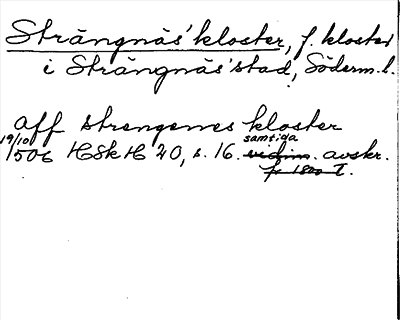 Strängnäs' kloster, f. kloster
i Strängnäs' stad, Söderm. l.
aff strengenes kloster
19/10 samtida
1506 HSkH 20, s. 16. vidim. avskr.
fr 1500 t.